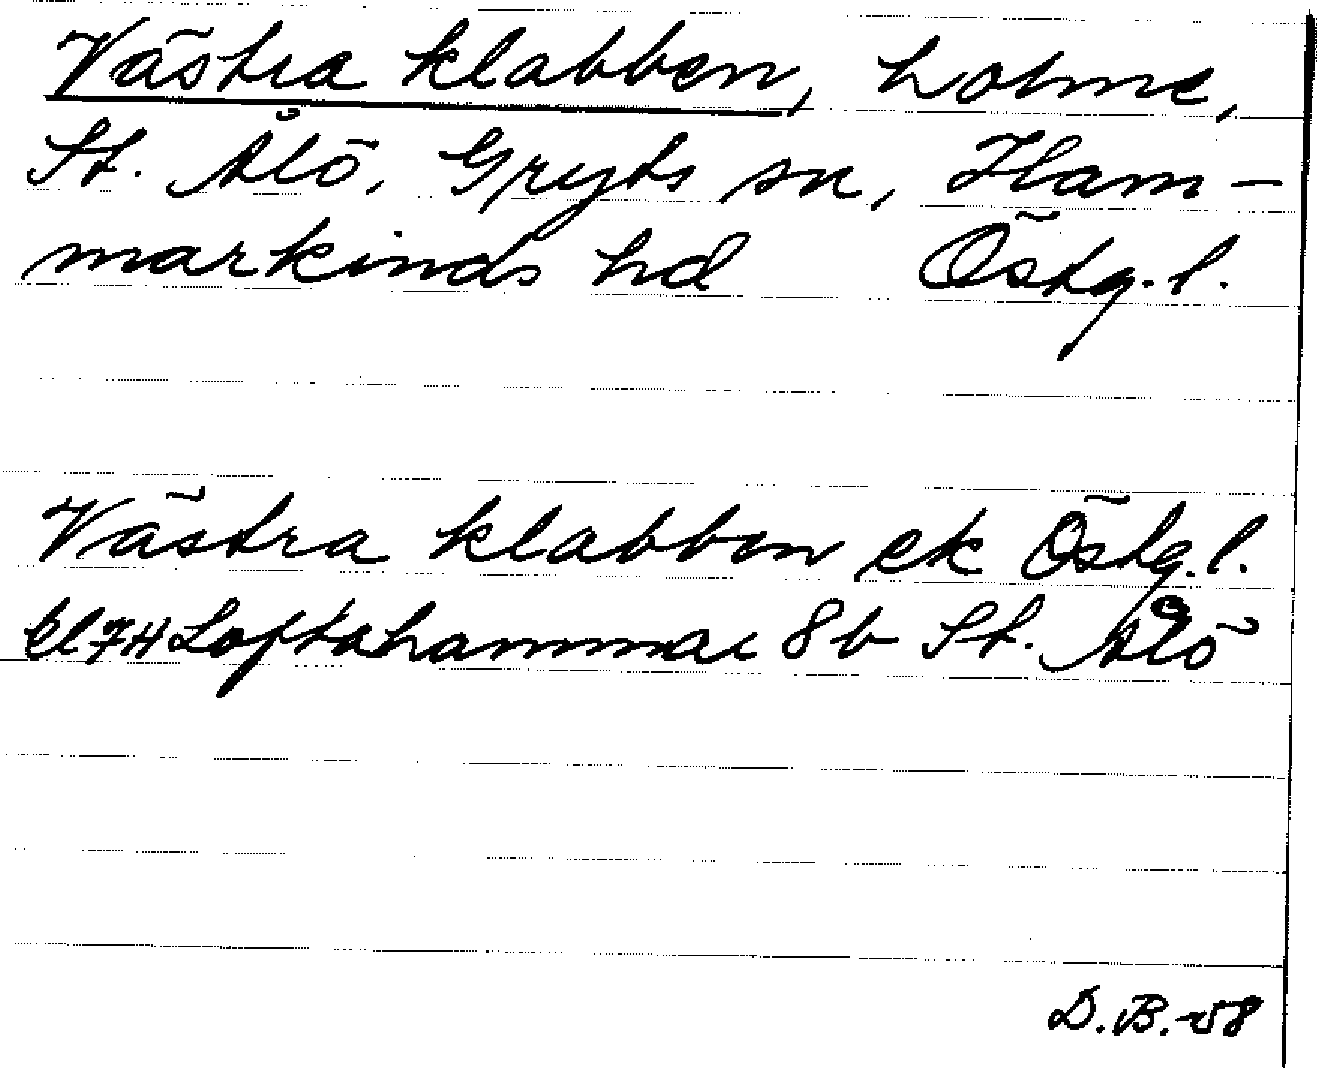 Västra klabben, holme,
St. Ålö, Gryts sn, Ham-
markinds hd Östg. l.
Västra klabben ek Östg. l.
bl 7H Loftahammar 8b St. Ålö
D. B. -58